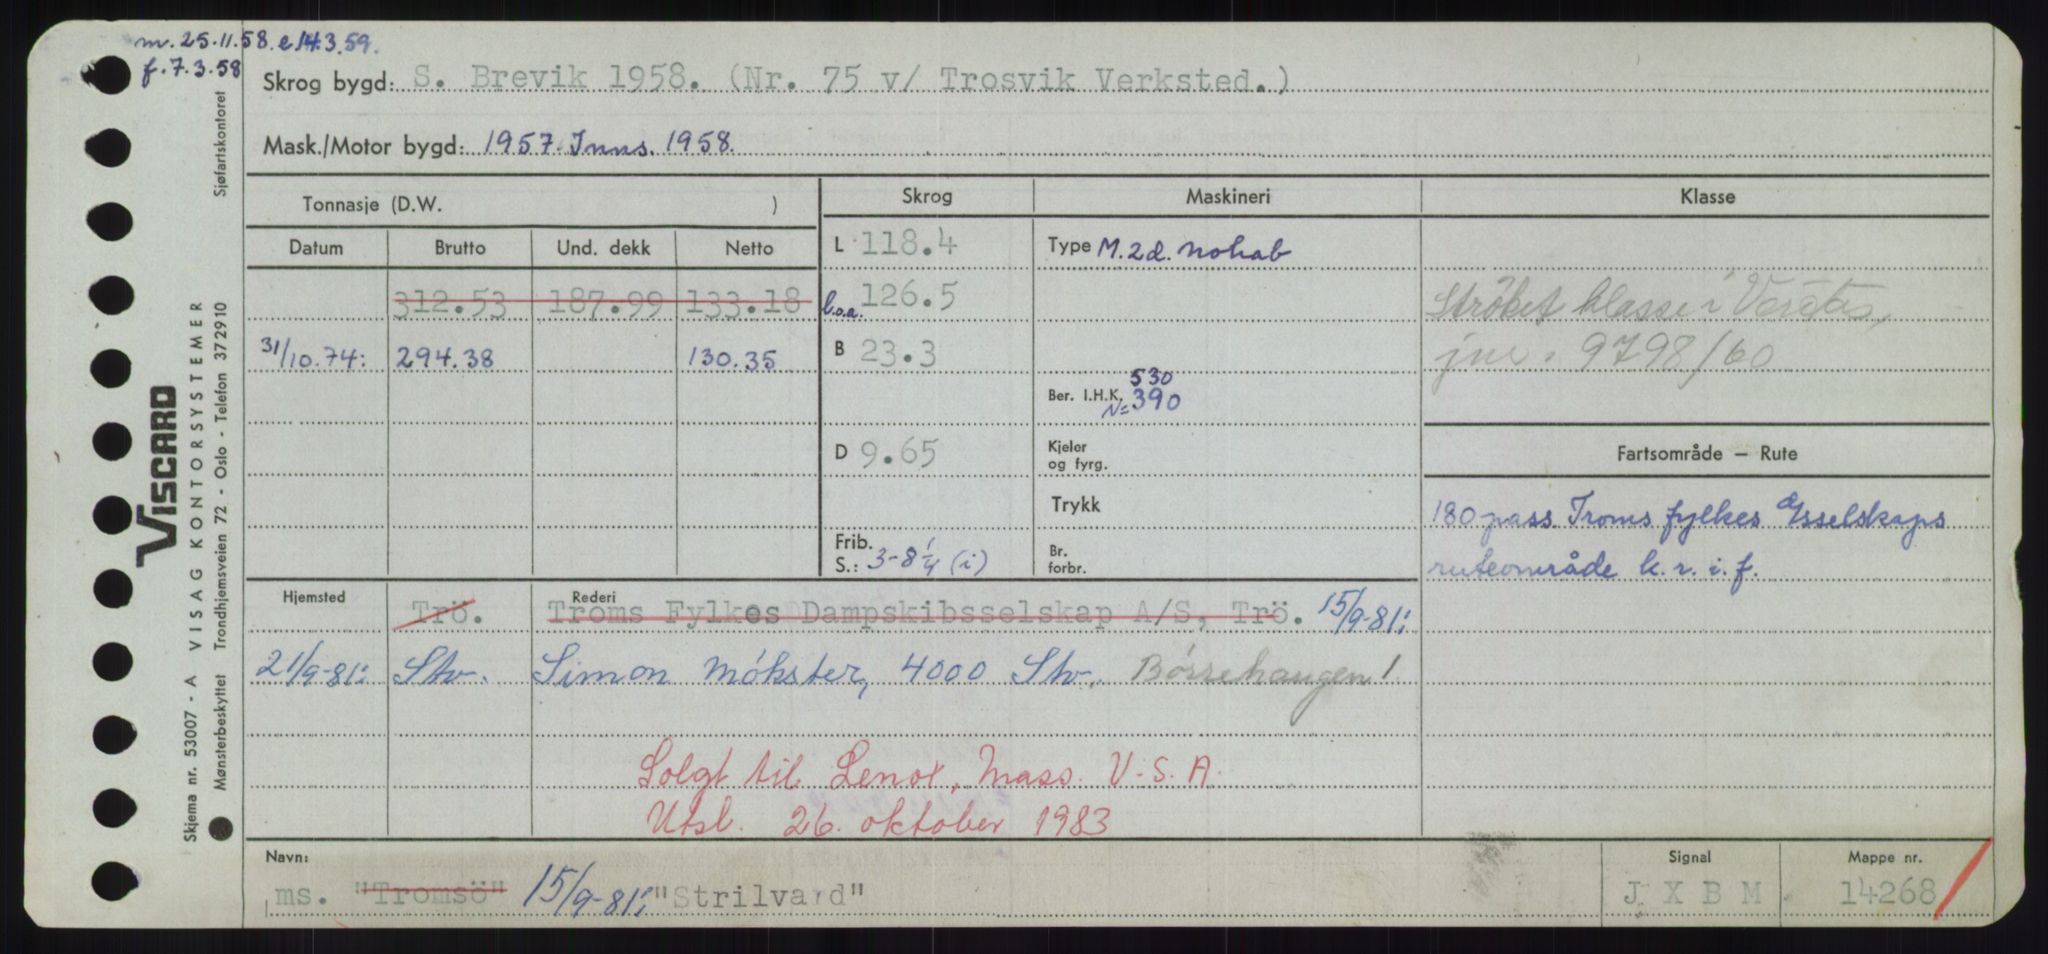 m. 25.11.58. e 14.3.59.
f. 7.3.58
Skrog bygd: S. Brevik 1958. (Nr. 75 v/ Trosvik Verksted.)
Mask./Motor bygd: 1957. Inns. 1958.
Tonnasje (D.W. ) Skrog Maskineri Klasse
Datum Brutto Und. dekk Netto L 118.4 Type M. 2d. Nohab
312.53 187.99 133.18 l.o.a. 126.5 Strøket klasse i Veritas,
31/10.74: 294.38 130.35 B 23.3 jnr. 9798/60
530
Ber. I.H.K. N= 390
D 9.65 Kjeler
og fyrg. Fartsområde – Rute
Trykk 180 pass Troms fylkes D/sselskaps
Frib.
S.: 3-8 1/4 (i) Br.
forbr. ruteområde k. r. i. f.
Hjemsted Trö. Rederi Troms Fylkes Dampskibsselskap A/S, Trö. 15/9-81:
21/9-81: Stv. Simon Møkster, 4000 Stv. Børrehaugen 1
Solgt til Lenox, Mass. U.S.A.
Utsl. 26. oktober 1983
Navn: Signal Mappe nr.
ms. "Tromsö" 15/9-81: "Strilvard" J X B M 14268
VISCARD
VISAG KONTORSYSTEMER
Skjema nr. 53007 - A
Mønsterbeskyttet Trondhjemsveien 72 - Oslo - Telefon 372910 Sjøfartskontoret